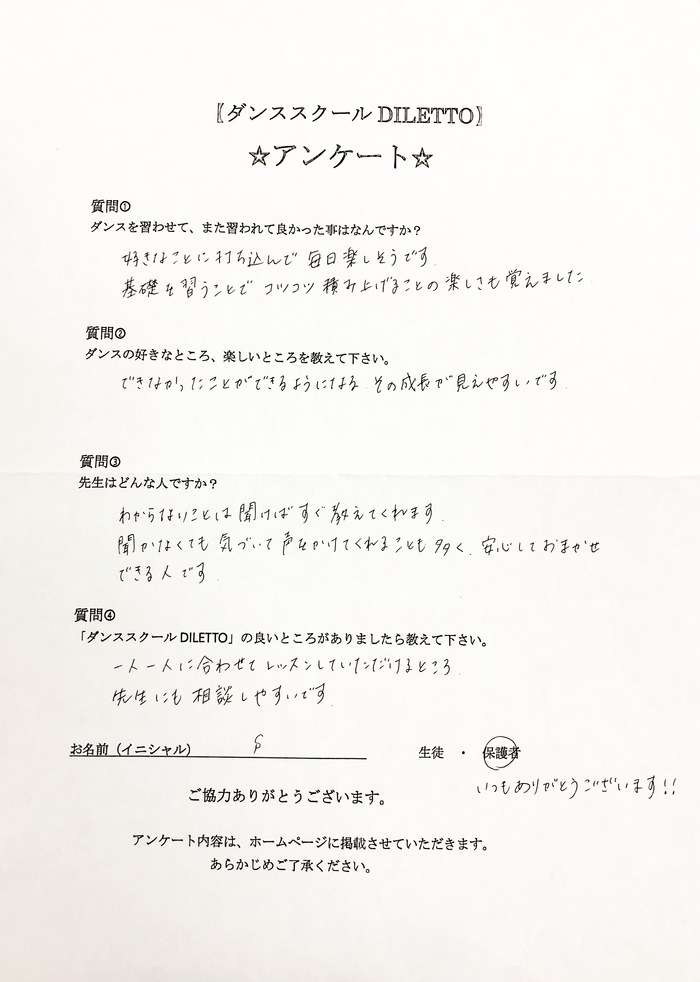 〖ダンススクール DILETTO〗
☆アンケート☆
質問①
ダンスを習わせて、また習われて良かった事はなんですか？
好きなことに打ち込んで 毎日楽しそうです.
基礎を習うことで コツコツ 積み上げることの楽しさも覚えました.
質問②
ダンスの好きなところ、楽しいところを教えて下さい。
できなかったことができるようになる. その成長が見えやすいです.
質問③
先生はどんな人ですか？
わからないことは聞けばすぐ教えてくれます.
聞かなくても気づいて声をかけてくれることも多く、安心しておまかせ
できる人です.
質問④
「ダンススクール DILETTO」の良いところがありましたら教えて下さい。
一人一人に合わせてレッスンしていただけるところ.
先生にも相談しやすいです.
お名前（イニシャル）
生徒 ・ 保護者
いつもありがとうございます!!
ご協力ありがとうございます。
アンケート内容は、ホームページに掲載させていただきます。
あらかじめご了承ください。